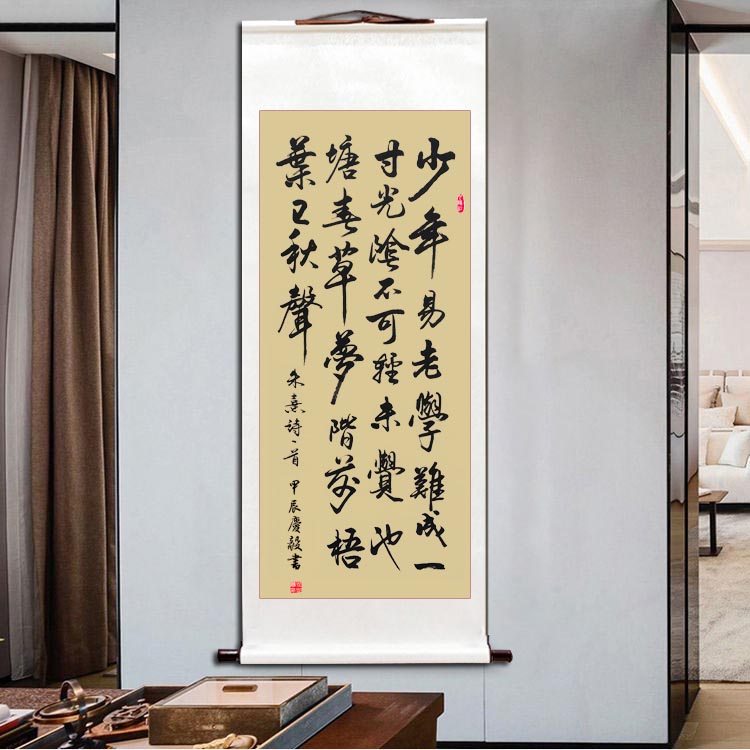 少年易老學難成一
寸光陰不可輕未覺池
塘春草夢階前梧
葉已秋聲
朱熹詩一首 甲辰慶毅書